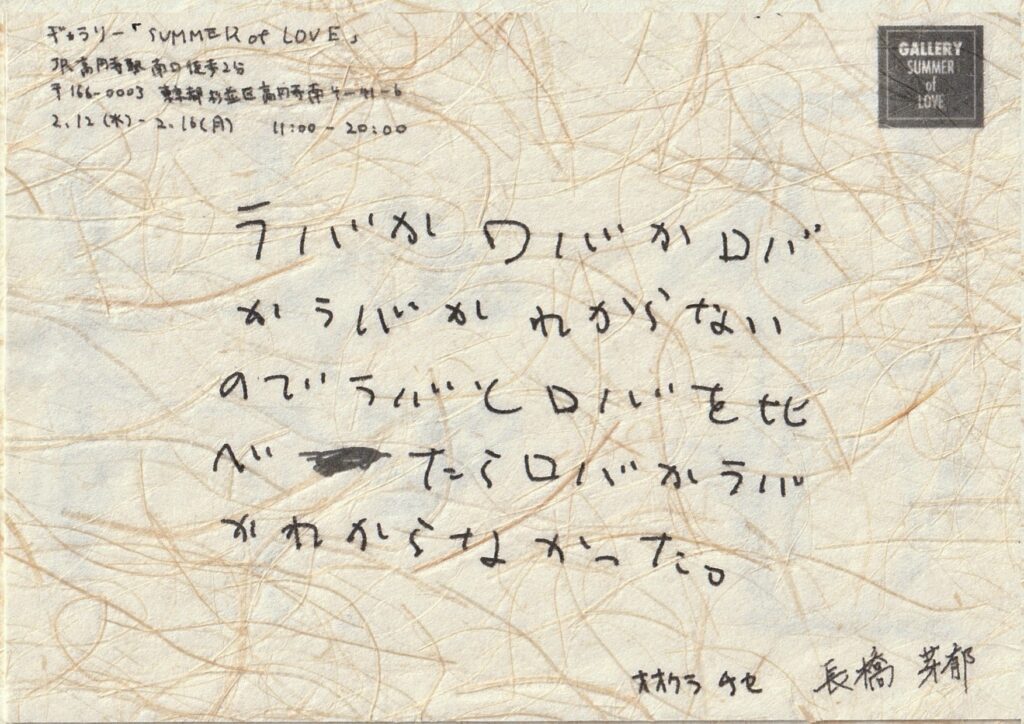 ギャラリー「SUMMER of LOVE」
JR高円寺駅 南口徒歩2分
〒166-0003 東京都杉並区高円寺南4-41-6
2.12(水)-2.16(月) 11:00-20:00
GALLERY
SUMMER
of
LOVE
ラバか ワバか ロバ
か ラバか わからない
のでラバとロバを比
べ たらロバかラバ
かわからなかった。
オオクラ チセ 長橋 芽郁